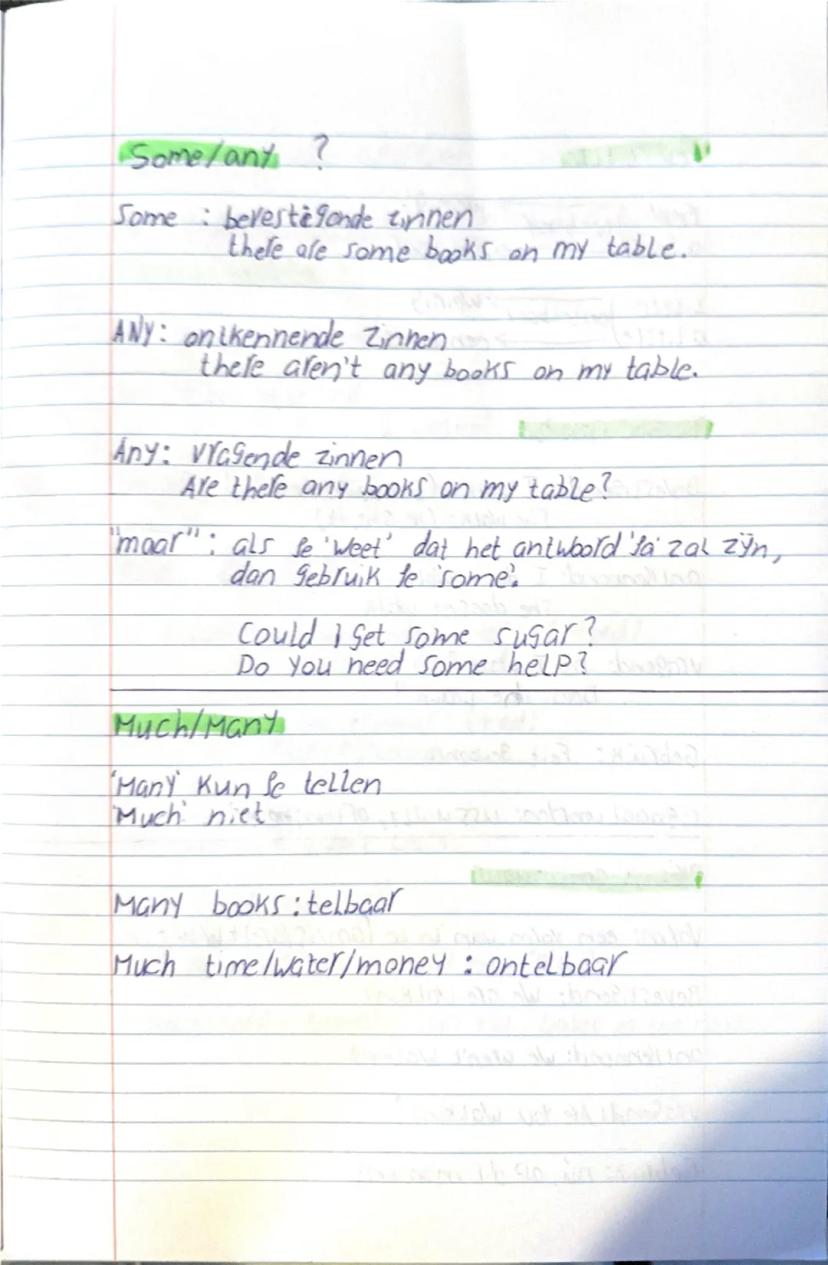 Some/any ?
Some : bevestigende zinnen
there are some books on my table.
ANY: ontkennende zinnen
there aren't any books on my table.
Any: vragende zinnen
Are there any books on my table?
"maar" : als je 'weet' dat het antwoord 'ja' zal zijn,
dan gebruik je 'some'.
Could I get some sugar?
Do you need some help?
Much/Many
'Many' kun je tellen
'Much' niet
Many books : telbaar
Much time/water/money : ontelbaar